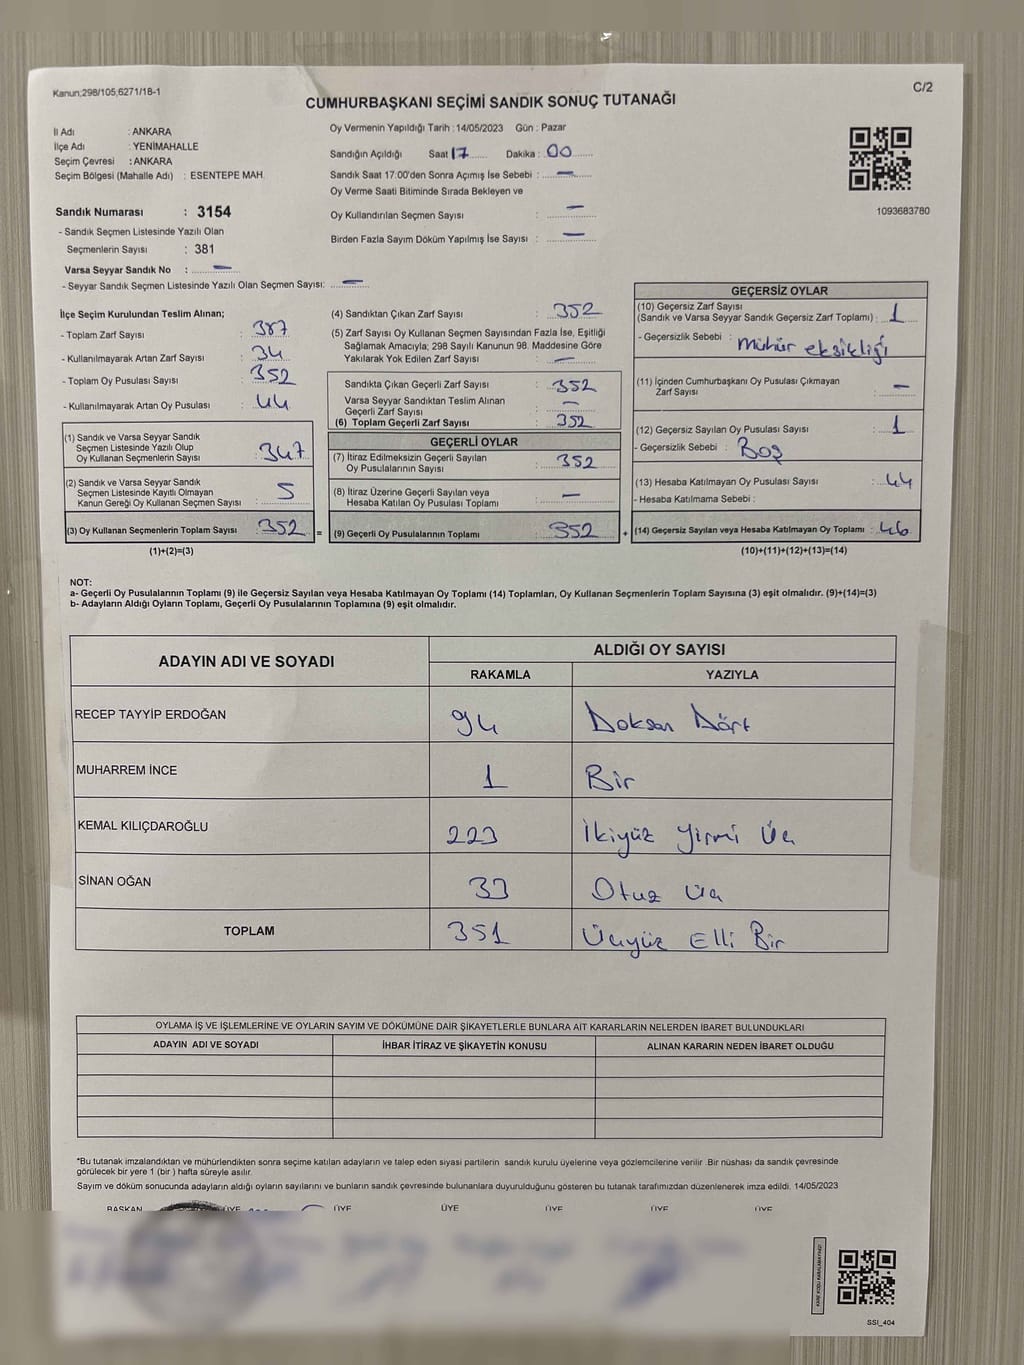 Kanun;298/105;6271/18-1
C/2
CUMHURBAŞKANI SEÇİMİ SANDIK SONUÇ TUTANAĞI
İl Adı : ANKARA
İlçe Adı : YENİMAHALLE
Seçim Çevresi : ANKARA
Seçim Bölgesi (Mahalle Adı) : ESENTEPE MAH.
Sandık Numarası : 3154
- Sandık Seçmen Listesinde Yazılı Olan
Seçmenlerin Sayısı : 381
Varsa Seyyar Sandık No : —
- Seyyar Sandık Seçmen Listesinde Yazılı Olan Seçmen Sayısı: —
Oy Vermenin Yapıldığı Tarih : 14/05/2023 Gün : Pazar
Sandığın Açıldığı Saat : 17 Dakika : 00
Sandık Saat 17:00'den Sonra Açımış İse Sebebi : —
Oy Verme Saati Bitiminde Sırada Bekleyen ve
Oy Kullandırılan Seçmen Sayısı : —
Birden Fazla Sayım Döküm Yapılmış İse Sayısı : —
1093683780
İlçe Seçim Kurulundan Teslim Alınan;
- Toplam Zarf Sayısı : 387
- Kullanılmayarak Artan Zarf Sayısı : 34
- Toplam Oy Pusulası Sayısı : 352
- Kullanılmayarak Artan Oy Pusulası : 44
(1) Sandık ve Varsa Seyyar Sandık
Seçmen Listesinde Yazılı Olup
Oy Kullanan Seçmenlerin Sayısı : 347
(2) Sandık ve Varsa Seyyar Sandık
Seçmen Listesinde Kayıtlı Olmayan
Kanun Gereği Oy Kullanan Seçmen Sayısı : 5
(3) Oy Kullanan Seçmenlerin Toplam Sayısı : 352 =
(1)+(2)=(3)
(4) Sandıktan Çıkan Zarf Sayısı : 352
(5) Zarf Sayısı Oy Kullanan Seçmen Sayısından Fazla İse, Eşitliği
Sağlamak Amacıyla; 298 Sayılı Kanunun 98. Maddesine Göre
Yakılarak Yok Edilen Zarf Sayısı : —
Sandıkta Çıkan Geçerli Zarf Sayısı : 352
Varsa Seyyar Sandıktan Teslim Alınan
Geçerli Zarf Sayısı : —
(6) Toplam Geçerli Zarf Sayısı : 352
GEÇERLİ OYLAR
(7) İtiraz Edilmeksizin Geçerli Sayılan
Oy Pusulalarının Sayısı : 352
(8) İtiraz Üzerine Geçerli Sayılan veya
Hesaba Katılan Oy Pusulası Toplamı : —
(9) Geçerli Oy Pusulalarının Toplamı : 352 +
GEÇERSİZ OYLAR
(10) Geçersiz Zarf Sayısı
(Sandık ve Varsa Seyyar Sandık Geçersiz Zarf Toplamı) : 1
- Geçersizlik Sebebi : Mühür eksikliği
(11) İçinden Cumhurbaşkanı Oy Pusulası Çıkmayan
Zarf Sayısı : —
(12) Geçersiz Sayılan Oy Pusulası Sayısı : 1
- Geçersizlik Sebebi : Boş
(13) Hesaba Katılmayan Oy Pusulası Sayısı : 44
- Hesaba Katılmama Sebebi :
(14) Geçersiz Sayılan veya Hesaba Katılmayan Oy Toplamı : 46
(10)+(11)+(12)+(13)=(14)
NOT:
a- Geçerli Oy Pusulalarının Toplamı (9) ile Geçersiz Sayılan veya Hesaba Katılmayan Oy Toplamı (14) Toplamları, Oy Kullanan Seçmenlerin Toplam Sayısına (3) eşit olmalıdır. (9)+(14)=(3)
b- Adayların Aldığı Oyların Toplamı, Geçerli Oy Pusulalarının Toplamına (9) eşit olmalıdır.
ADAYIN ADI VE SOYADI
ALDIĞI OY SAYISI
RAKAMLA YAZIYLA
RECEP TAYYİP ERDOĞAN 94 Doksan Dört
MUHARREM İNCE 1 Bir
KEMAL KILIÇDAROĞLU 223 İkiyüz Yirmi Üç
SİNAN OĞAN 33 Otuz Üç
TOPLAM 351 Üçyüz Elli Bir
OYLAMA İŞ VE İŞLEMLERİNE VE OYLARIN SAYIM VE DÖKÜMÜNE DAİR ŞİKAYETLERLE BUNLARA AİT KARARLARIN NELERDEN İBARET BULUNDUKLARI
ADAYIN ADI VE SOYADI İHBAR İTİRAZ VE ŞİKAYETİN KONUSU ALINAN KARARIN NEDEN İBARET OLDUĞU
*Bu tutanak imzalandıktan ve mühürlendikten sonra seçime katılan adayların ve talep eden siyasi partilerin sandık kurulu üyelerine veya gözlemcilerine verilir .Bir nüshası da sandık çevresinde
görülecek bir yere 1 (bir ) hafta süreyle asılır.
Sayım ve döküm sonucunda adayların aldığı oyların sayılarını ve bunların sandık çevresinde bulunanlara duyurulduğunu gösteren bu tutanak tarafımızdan düzenlenerek imza edildi. 14/05/2023
BAŞKAN ÜYE ÜYE ÜYE ÜYE ÜYE ÜYE
KARE KODU KARALAMAYINIZ!
SSI_404